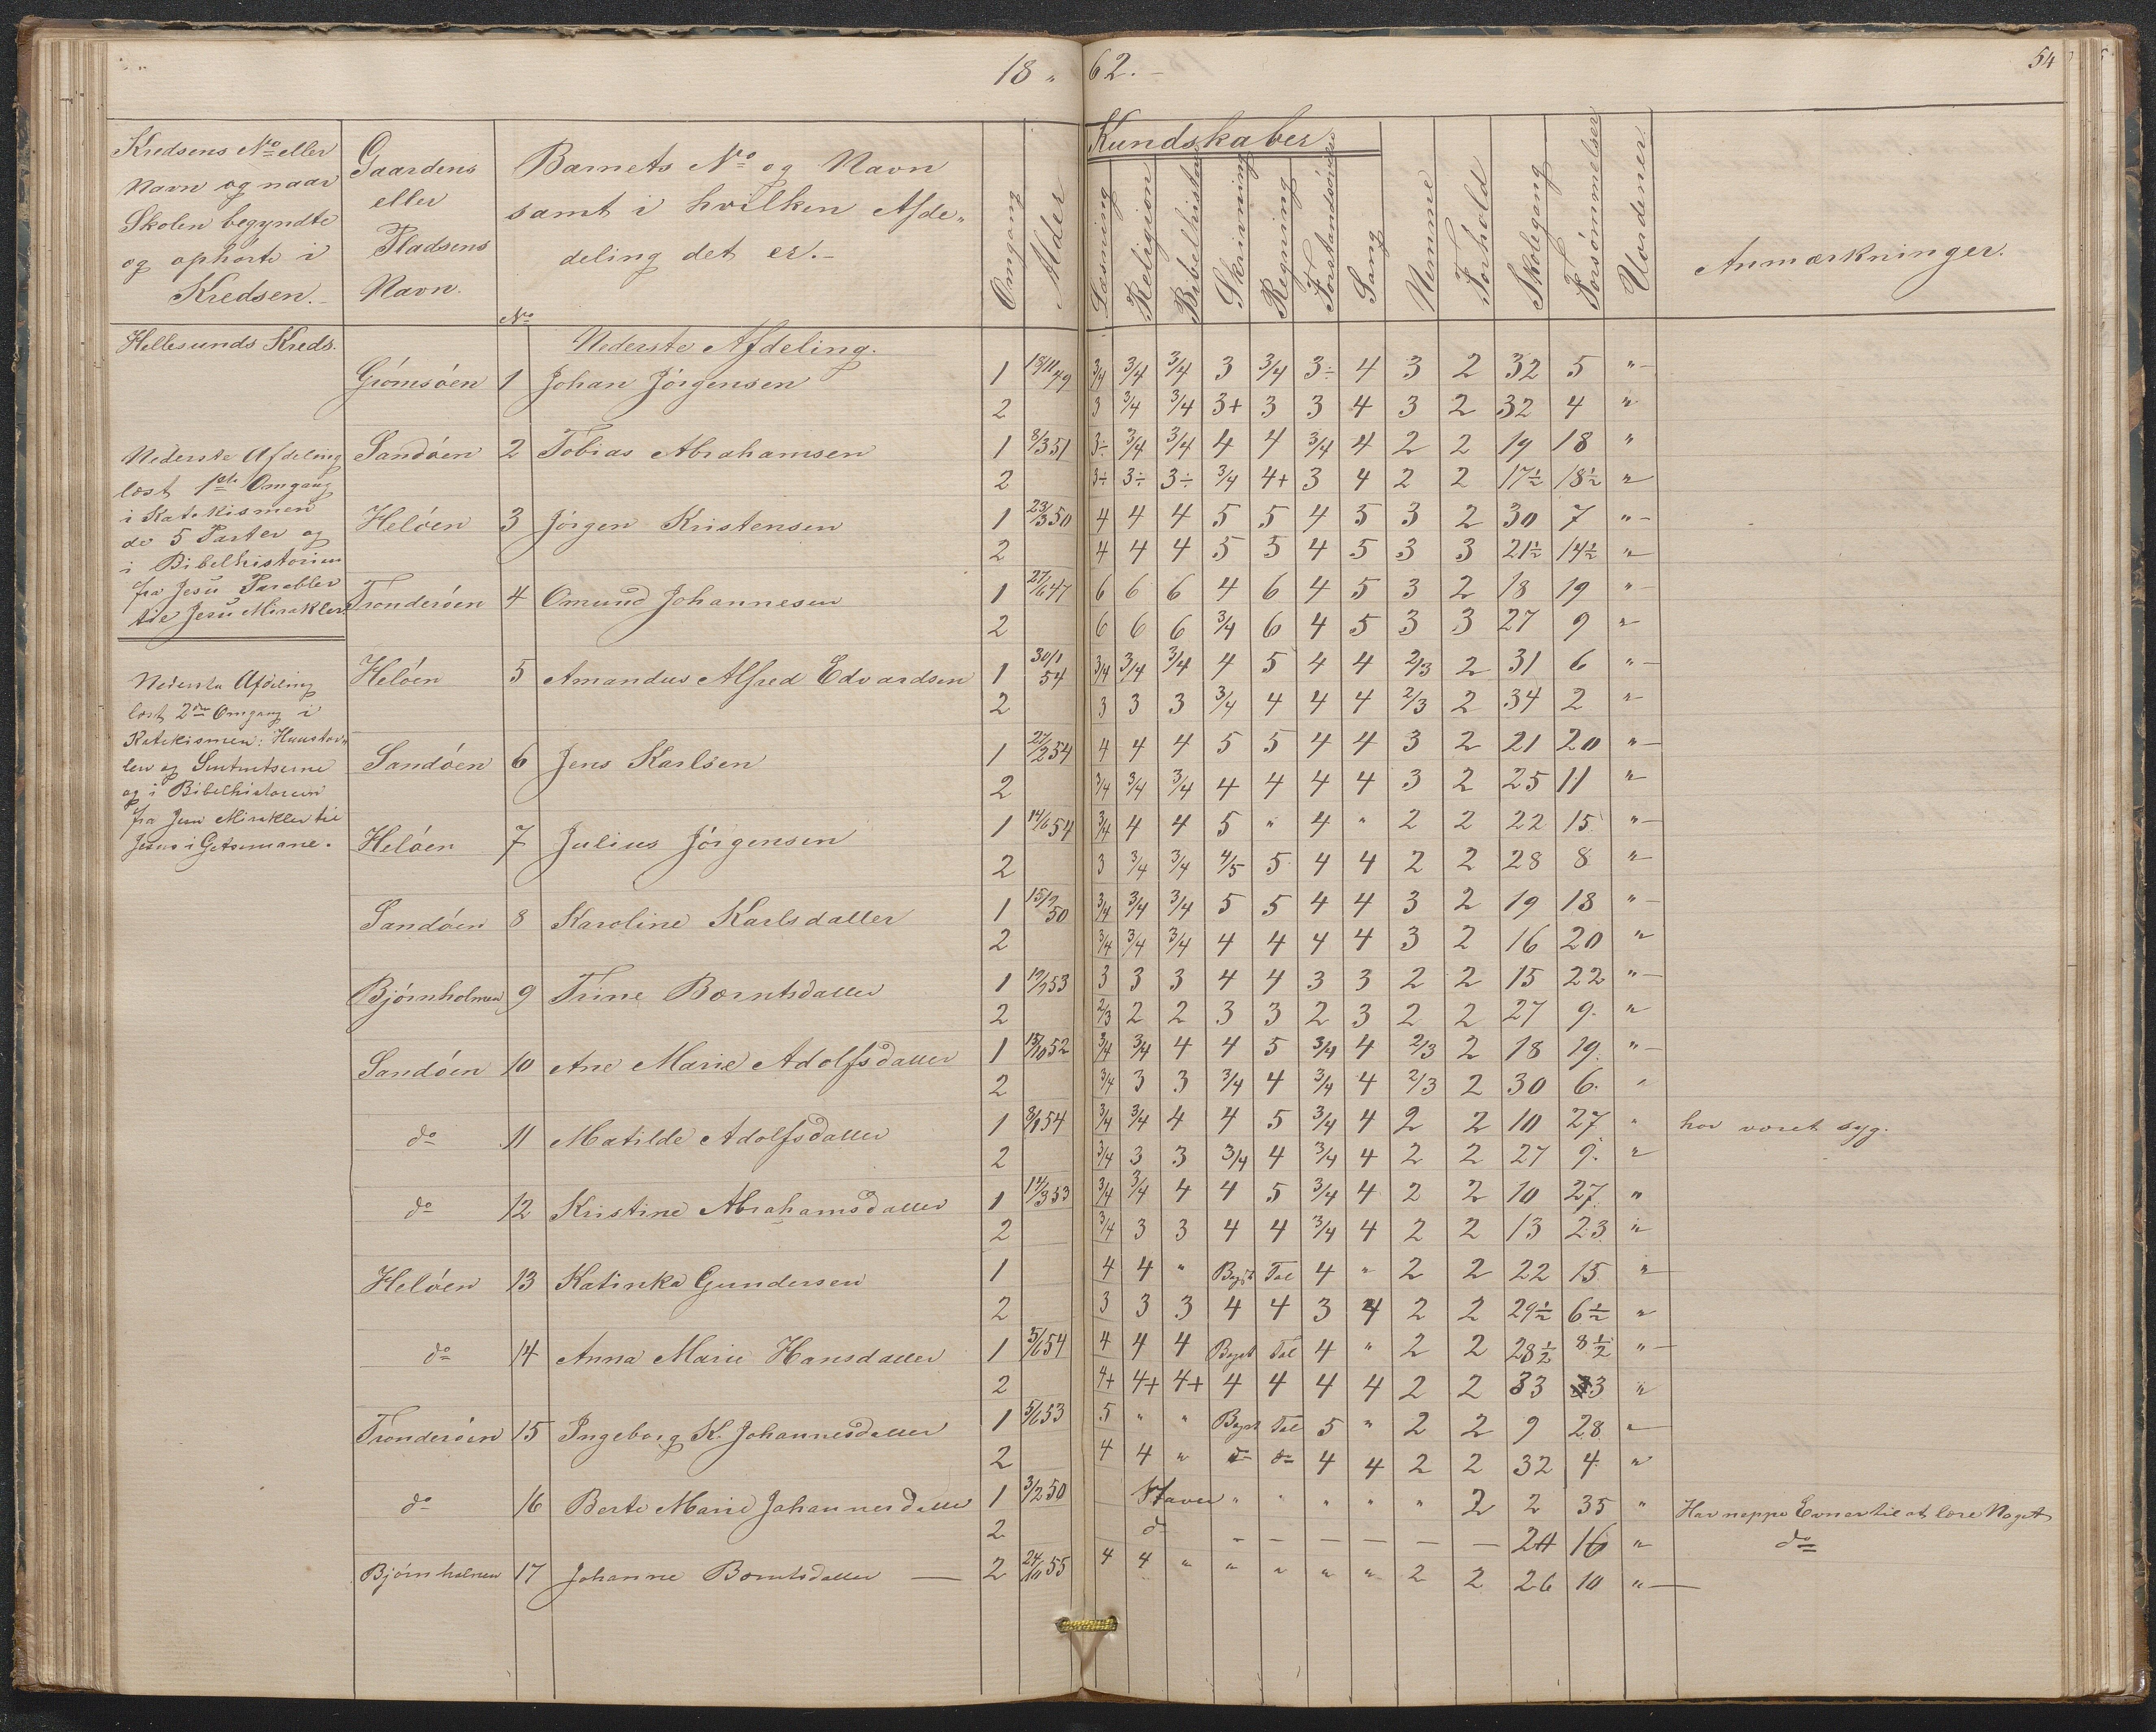 18 " 62.-
54
Kredsens No eller
Navn og naar
Skolen begyndte
og ophørte i
Kredsen.-
Gaardens
eller
Pladsens
Navn.
Barnets No og Navn
samt i hvilken Afde„
deling det er.-
Omgang
Alder
Kundskaber
Læsning
Religion
Bibelhistorie
Skrivning
Regning
Forstandsøvelse
Sang
Nemme
Forhold
Skolegang
Forsømmelser
Uordener
Anmærkninger.
No
Hellesunds Kreds.
Nederste Afdeling.
Grømsøen 1 Johan Jørgensen 1 18/11 49 3/4 3/4 3/4 3 3/4 3÷ 4 3 2 32 5 "
2 3 3/4 3/4 3+ 3 3 4 3 2 32 4 "
Sandøen 2 Tobias Abrahamsen 1 8/3 51 3÷ 3/4 3/4 4 4 3/4 4 2 2 19 18 "
2 3÷ 3÷ 3÷ 3/4 4+ 3 4 2 2 17½ 18½ "
Heløen 3 Jørgen Kristensen 1 23/3 50 4 4 4 5 5 4 5 3 2 30 7 "
2 4 4 4 5 5 4 5 3 3 21½ 14½ "
Trondersøen 4 Omund Johannesen 1 27/6 47 6 6 6 4 6 4 5 3 2 18 19 "
2 6 6 6 3/4 6 4 5 3 3 27 9 "
Heløen 5 Amandus Alfred Edvardsen 1 30/1 54 3/4 3/4 3/4 4 5 4 4 2/3 2 31 6 "
2 3 3 3 3/4 4 4 4 2/3 2 34 2 "
Sandøen 6 Jens Karlsen 1 27/2 54 4 4 4 5 5 4 4 3 2 21 20 "
2 3/4 3/4 3/4 4 4 4 4 3 2 25 11 "
Heløen 7 Julius Jørgensen 1 14/6 54 3/4 4 4 5 " 4 " 2 2 22 15 "
2 3 3/4 3/4 4/5 5 4 4 2 2 28 8 "
Sandøen 8 Karoline Karlsdatter 1 15/7 50 3/4 3/4 3/4 5 5 4 4 3 2 19 18 "
2 3/4 3/4 3/4 4 4 4 4 3 2 16 20 "
Bjørnholmen 9 Trine Bærntsdatter 1 53 3 3 3 4 4 3 3 2 2 15 22 "
2 2/3 2 2 3 3 2 3 2 2 27 9 "
Sandøen 10 Ane Marie Adolfsdatter 1 18/10 52 3/4 3/4 4 4 5 3/4 4 2/3 2 18 19 "
2 3/4 3 3 3/4 4 3/4 4 2/3 2 30 6 "
do 11 Matilde Adolfsdatter 1 54 3/4 3/4 4 4 5 3/4 4 2 2 10 27 " har været syg.
2 3/4 3 3 3/4 4 3/4 4 2 2 27 9 "
do 12 Kristine Abrahamsdatter 1 3 53 3/4 3/4 4 4 5 3/4 4 2 2 10 27 "
2 3/4 3 3 4 4 3/4 4 2 2 13 23 "
Heløen 13 Katinka Gundersen 1 4 4 " Bogst Tal 4 " 2 2 22 15 "
2 3 3 3 4 4 3 4 2 2 29½ 6½ "
do 14 Anna Marie Hansdatter 1 5/6 54 4 4 4 Bogst Tal 4 " 2 2 28½ 8½ "
2 4+ 4+ 4+ 4 4 4 4 2 2 33 3 "
Trondersøen 15 Ingeborg K. Johannesdatter 1 5/6 53 5 " " Bogst Tal 5 " 2 2 9 28 "
2 4 4 " do do 4 4 2 2 32 4 "
do 16 Berte Marie Johannesdatter 1 3/2 50 Staver " " " " " 2 2 35 " Har neppe Evner til at lære Noget
2 do — — — — — — 16 " do
Bjørnholmen 17 Johanne Bærntsdatter — 2 24/10 55 4 4 " " " " " 2 2 26 10 "
Nederste Afdeling
læst 1ste Omgang
i Katekismen
de 5 Parter og
i Bibelhistorien
fra Jesu Parabler
til Jesu Mirakler
Nederste Afdeling
læst 2den Omgang i
Katekismen: Huustav„
len og Sentntserne
og i Bibelhistorien
fra Jesu Mirakler til
Jesus i Getsemane.